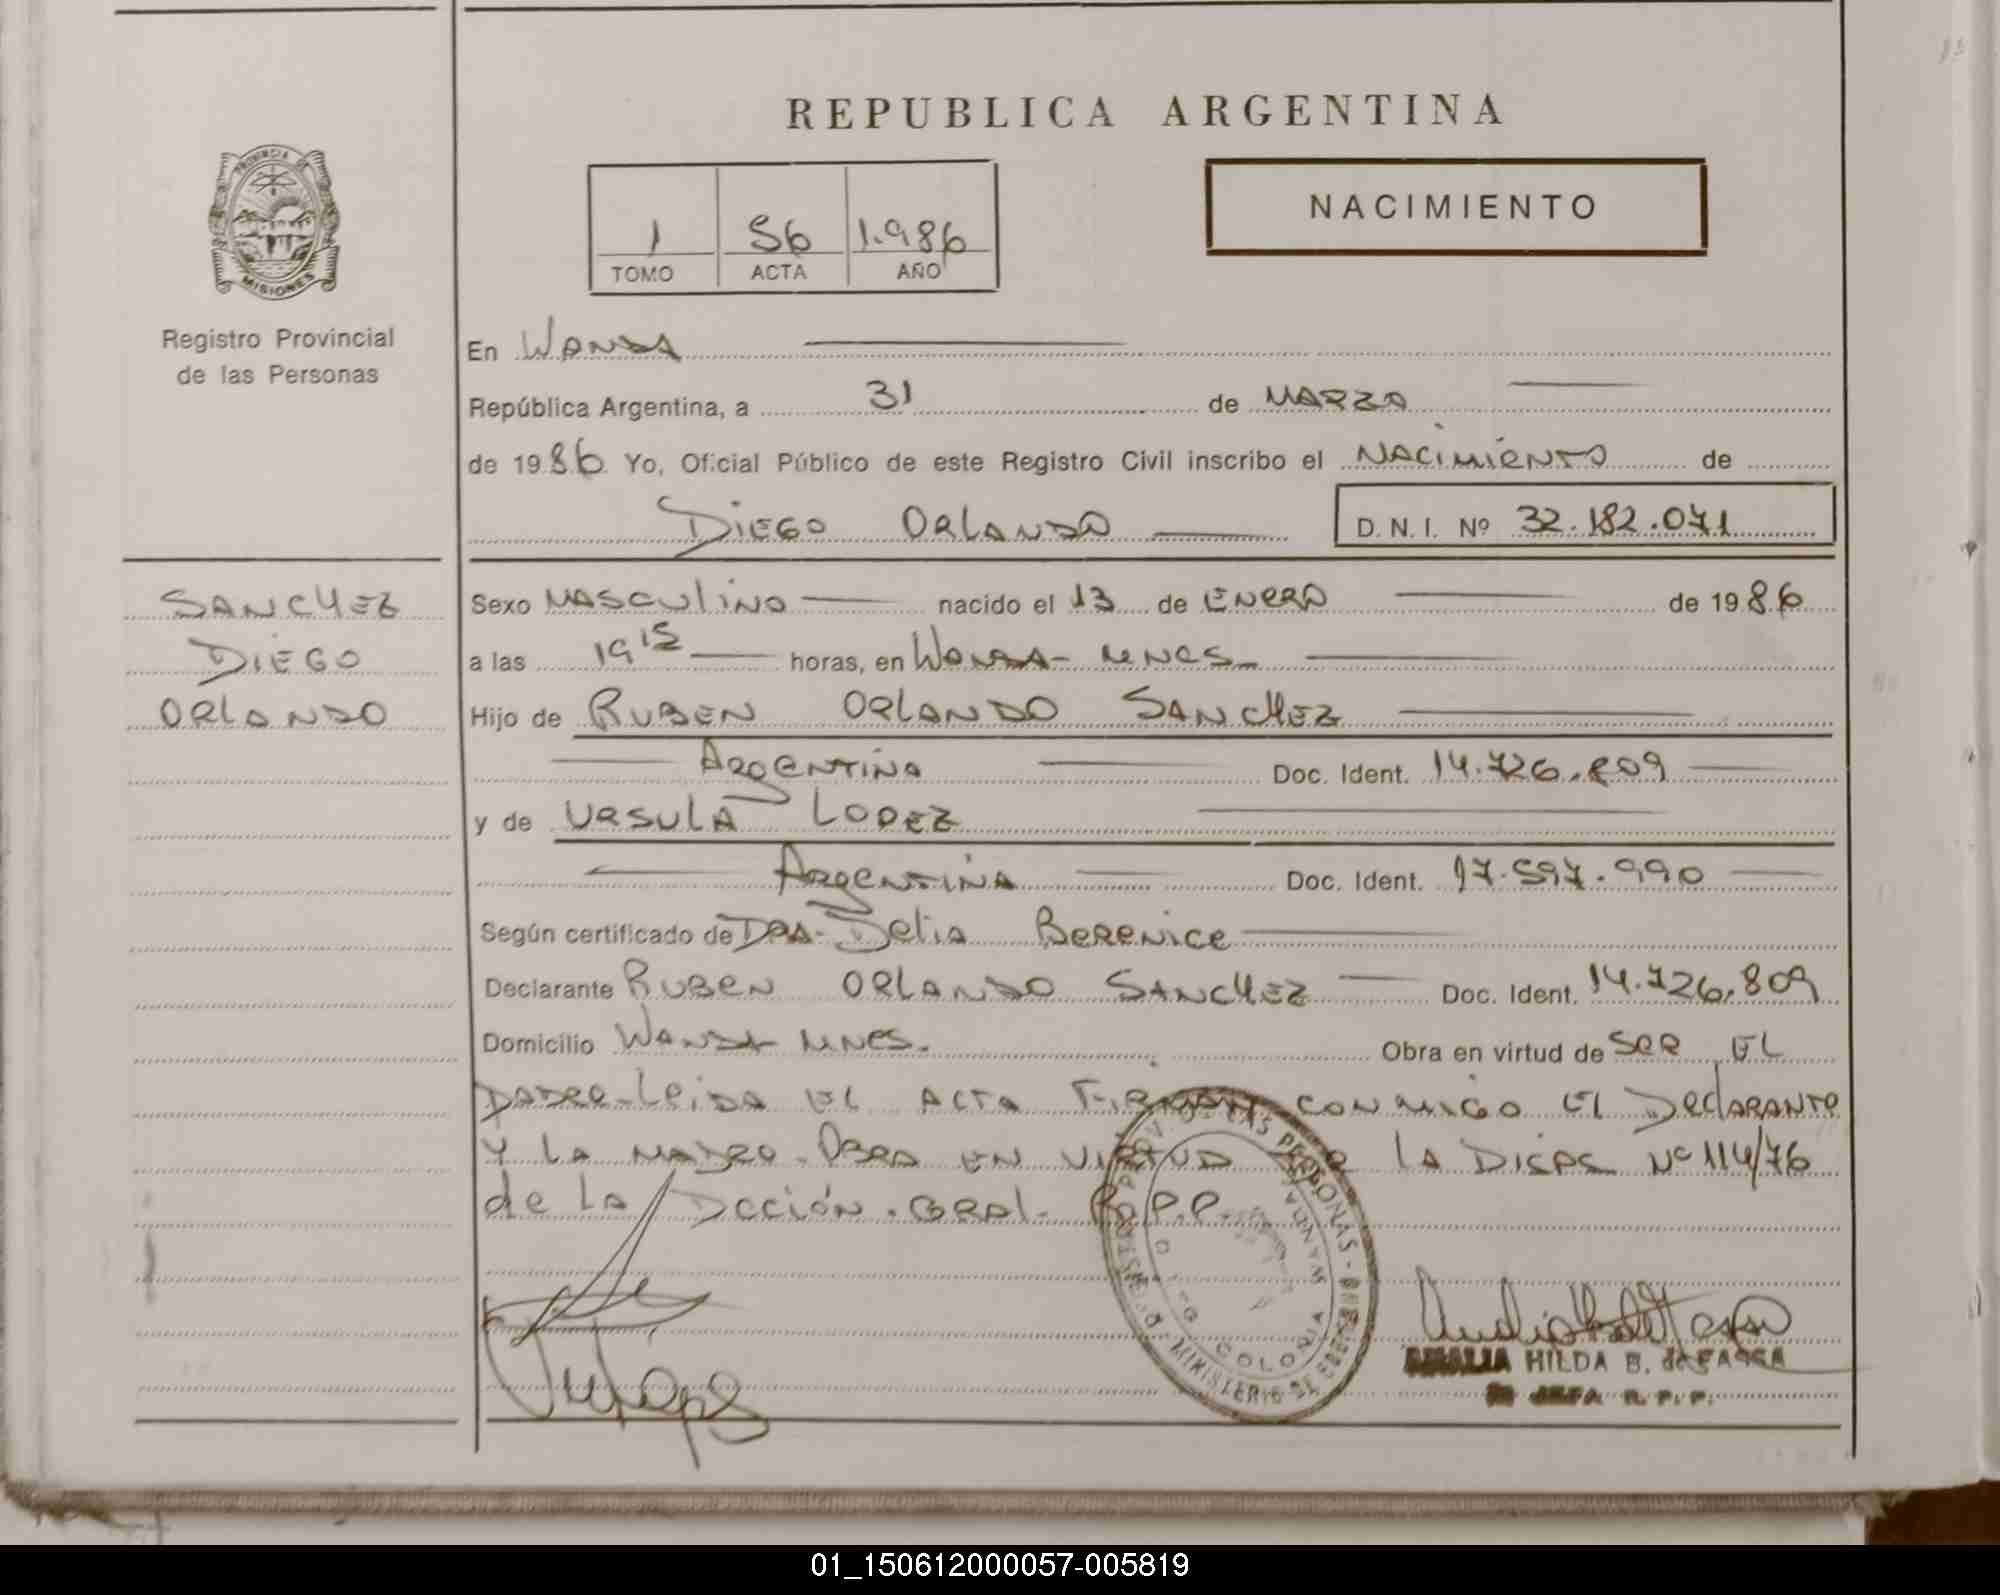 REPUBLICA ARGENTINA
PROVINCIA DE
MISIONES
Registro Provincial
de las Personas
1 56 1.986
TOMO ACTA AÑO
NACIMIENTO
En WANDA
República Argentina, a 31 de MARZO
de 1986 Yo, Oficial Público de este Registro Civil inscribo el NACIMIENTO de
DIEGO ORLANDO D.N.I. Nº 32.182.071
SANCHEZ
DIEGO
ORLANDO
Sexo MASCULINO nacido el 13 de ENERO de 1986
a las 19 15 horas, en WANDA- MNES-
Hijo de RUBEN ORLANDO SANCHEZ
ARGENTINA Doc. Ident. 14.726.809
y de URSULA LOPEZ
ARGENTINA Doc. Ident. 17.597.990
Según certificado de DRA- DELIA BERENICE
Declarante RUBEN ORLANDO SANCHEZ Doc. Ident. 14.726.809
Domicilio WANDA MNES. Obra en virtud de SER EL
PADRE-LEIDA EL ACTA FIRMAN CONMIGO EL DECLARANTE
Y LA MADRE-OBRA EN VIRTUD LA DISPS Nº 114/76
de LA DCCIÓN. GRAL. R.P.P.
LAS PERSONAS - MINISTERIO DE GOBIERNO
COLONIA WANDA
AMALIA HILDA B. de
JEFA R.P.P.
01_150612000057-005819